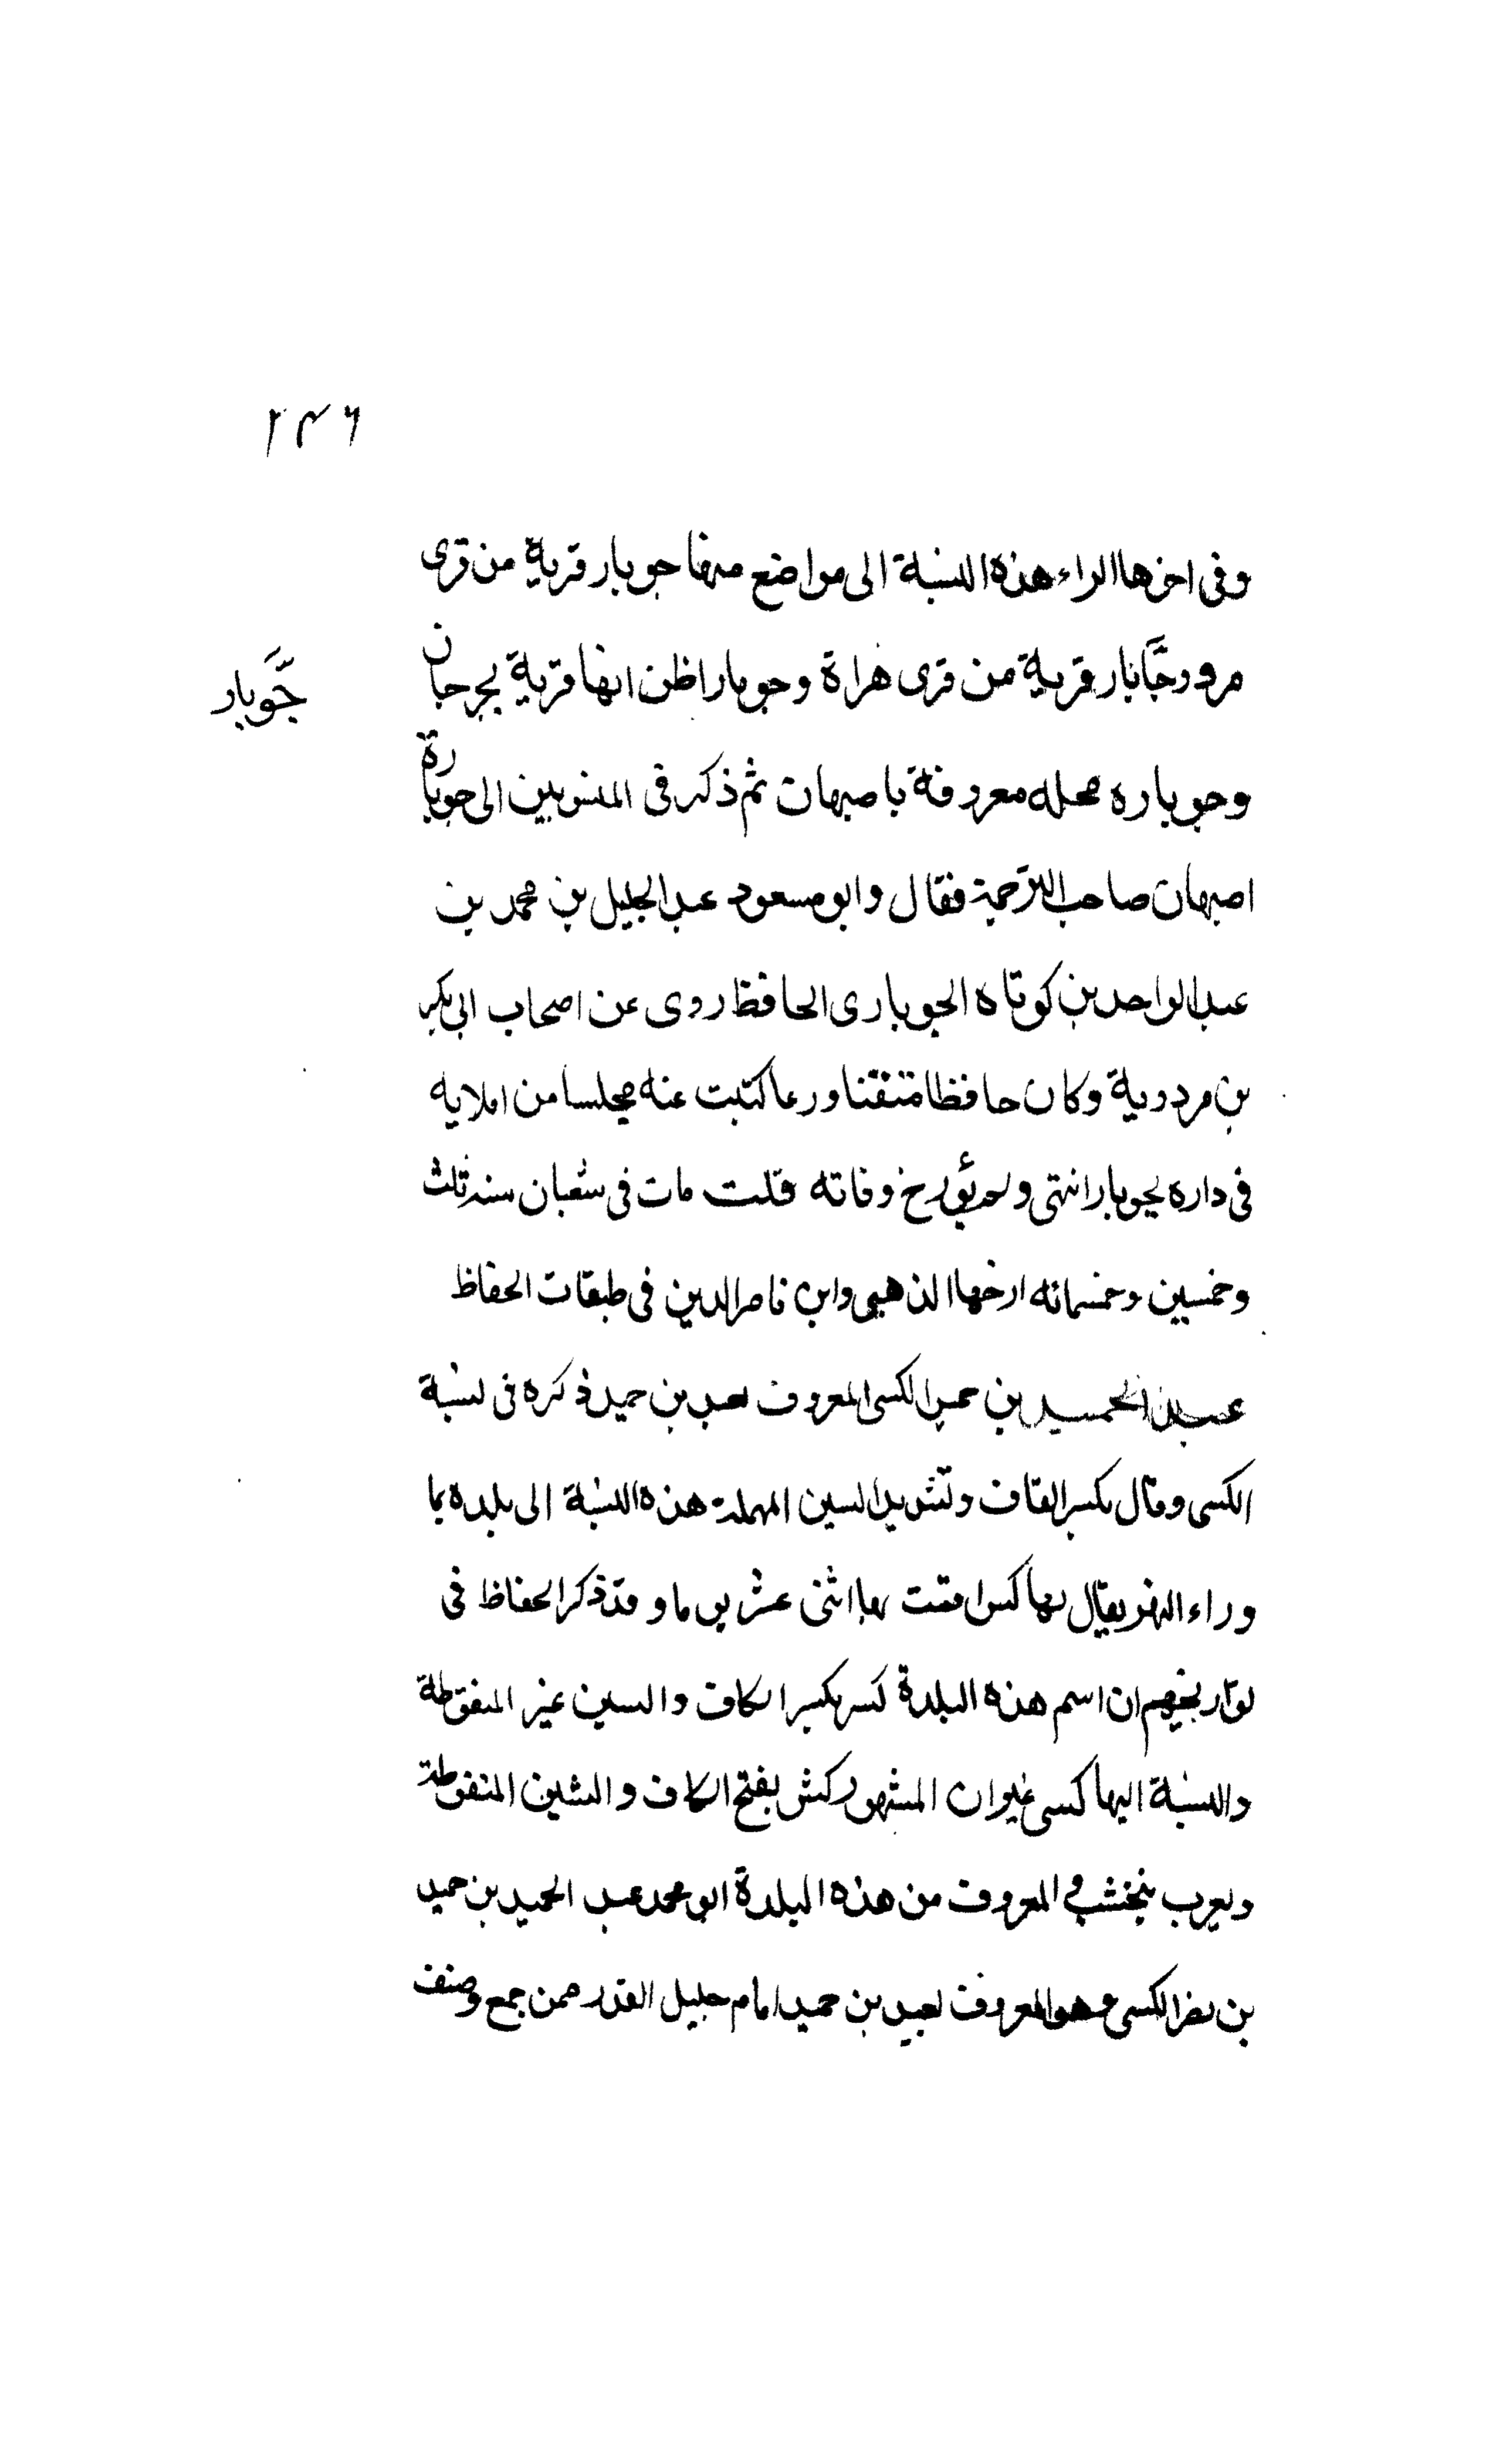 ٢٤٦
وفى اخرها الراء هذه النسبة الى مواضع منها جوبار قرية من قرى
مرو وجَّابار قرية من قرى هراة وجوبار اظن انها قرية بجرجان
جَّوبار
وجوباره محله معروفة باصبهان ثم ذكر فى المنسوبين الى جوبارة
اصبهان صاحب الترجمة فقال وابو مسعود عبد الجليل بن محمد بن
عبد الواحد بن كوتاه الجوبارى الحافظ روى عن اصحاب ابى بكر
بن مردوية وكان حافظا متقنا ورعا كتبت عنه مجلسا من املايه
فى داره بجوبار انتهى ولم يؤرخ وفاته قلت مات فى شعبان سنه ثلث
وخمسين وخمسمائه ارخها الذهبى وابن ناصر الدين فى طبقات الحفاظ
عبد الحميد بن حميد الكسى المعروف بعبد بن حميد ذكره فى نسبة
الكسى وقال بكسر القاف وتشديد السين المهملة هذه النسبة الى بلده بما
وراء النهر يقال لها كس اقمت بها اثنى عشر يوما وقد ذكر الحفاظ فى
تواريخهم ان اسم هذه البلدة كس بكسر الكاف والسين غير المنقوطة
والنسبة اليها كسى غير ان المشهور كش بفتح الكاف والشين المنقوطة
وبعرب بنخشب المعروف من هذه البلدة ابو محمد عبد الحميد بن حميد
بن نصر الكسى وهو المعروف بعبد بن حميد امام جليل القدر ممن جمع وصنف